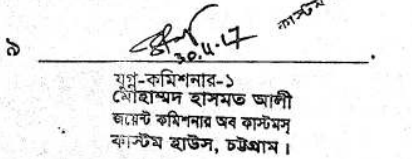 কাস্টম
৯
30.4.17
যুগ্ন-কমিশনার-১
মোহাম্মদ হাসমত আলী
জয়েন্ট কমিশনার অব কাস্টমস্
কাস্টম হাউস, চট্টগ্রাম।